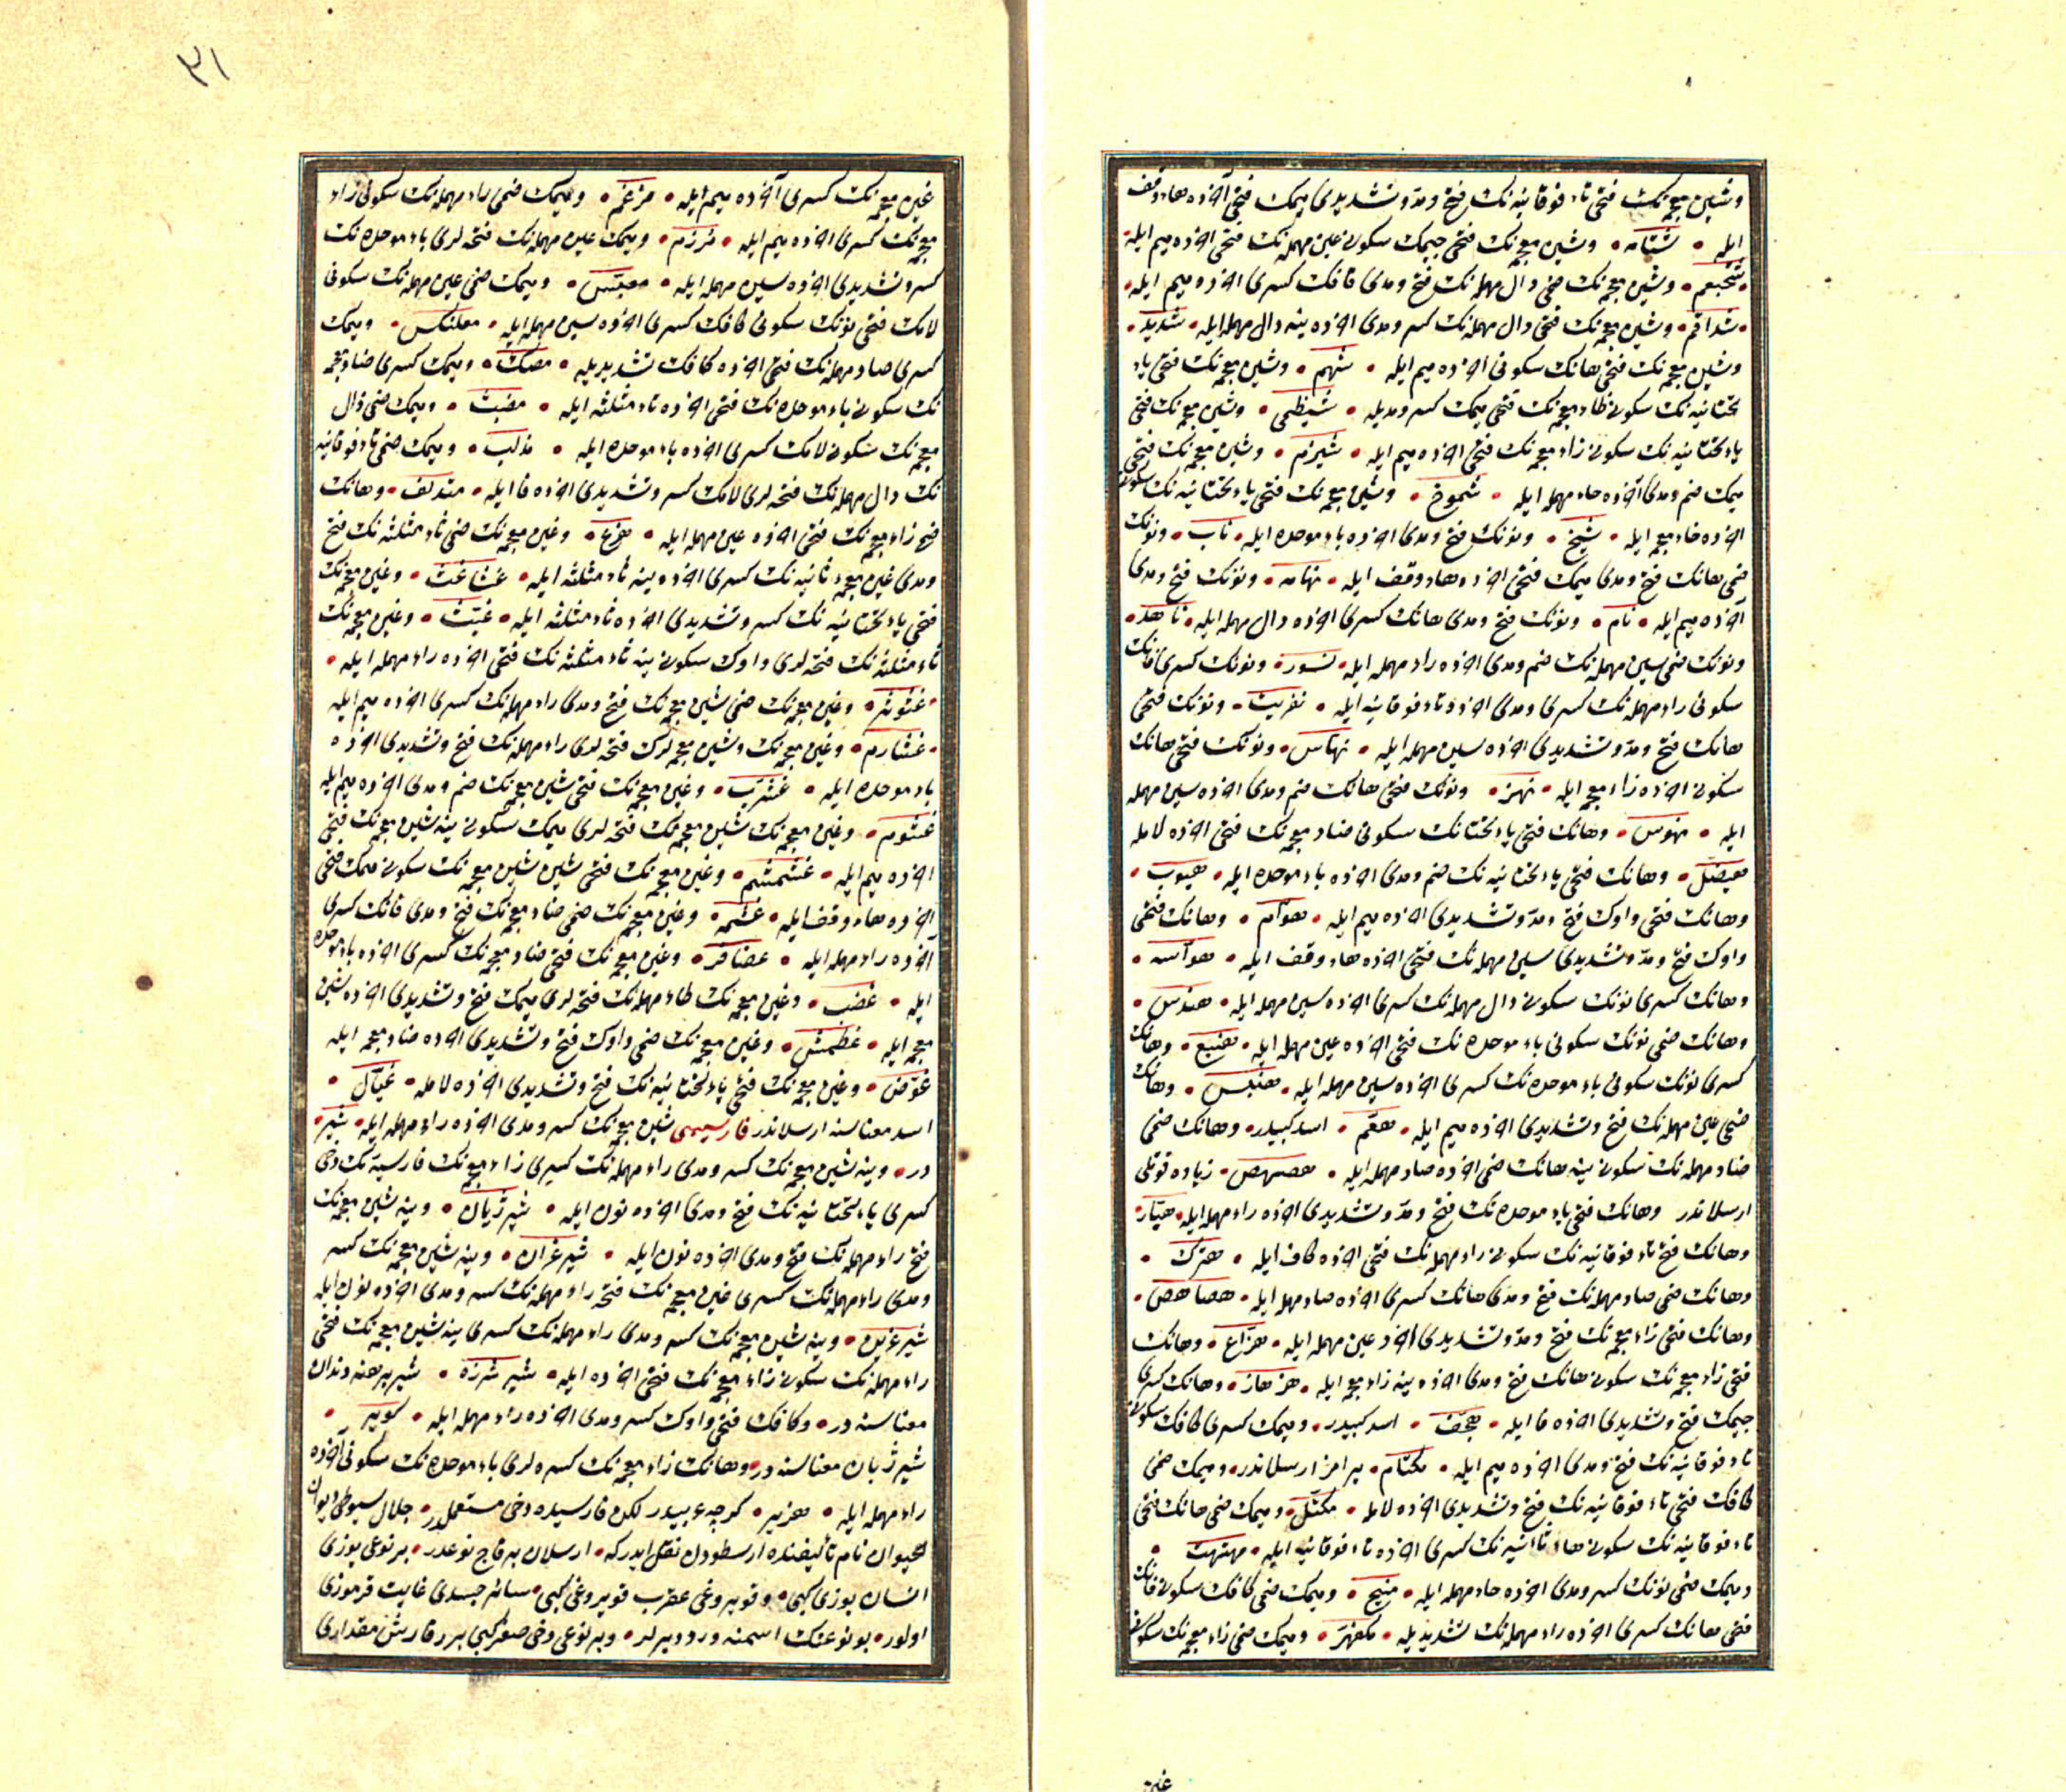 وشین معجمه‌نک فتحی تاء فوقانیه‌نک فتح ومدّ وتشدیدی میمک فتحی آخرده هاء وقف
ایله • شتّامه • وشین معجمه‌نک فتحی جیمک سکونی عین مهمله‌نک فتحی آخرده میم ایله •
شجعم • وشین معجمه‌نک ضمی دال مهمله‌نک فتح ومدی قافک کسری آخرده میم ایله •
شداقم • وشین معجمه‌نک فتحی دال مهمله‌نک کسر ومدی آخرده ینه دال مهمله ایله • شدید •
وشین معجمه‌نک فتحی هانک سکونی آخرده میم ایله • شهم • وشین معجمه‌نک فتحی یاء
تحتانیه‌نک سکونی ظاء معجمه‌نک فتحی میمک کسر ومدیله • شیظمی • وشین معجمه‌نک فتحی
یاء تحتانیه‌نک سکونی زاء معجمه‌نک فتحی آخرده میم ایله • شیزم • وشین معجمه‌نک فتحی
میمک ضم ومدی آخرده حاء مهمله ایله • شموخ • وشین معجمه‌نک فتحی یاء تحتانیه‌نک سکونی
آخرده خاء معجمه ایله • شیخ • ونونک فتح ومدی آخرده باء موحده ایله • ناب • ونونک
ضمی هانک فتح ومدی میمک فتحی آخرده هاء وقف ایله • نهامه • ونونک فتح ومدی
آخرده میم ایله • نام • ونونک فتح ومدی هانک کسری آخرده دال مهمله ایله • ناهد •
ونونک ضمی سین مهمله‌نک ضم ومدی آخرده راء مهمله ایله • نسور • ونونک کسری فانک
سکونی راء مهمله‌نک کسری ومدی آخرده تاء فوقانیه ایله • نفریت • ونونک فتحی
هانک فتح ومدّ وتشدیدی آخرده سین مهمله ایله • نهاس • ونونک فتحی هانک
سکونی آخرده زاء معجمه ایله • نهز • ونونک فتحی هانک ضم ومدی آخرده سین مهمله
ایله • نهوس • وهانک فتحی یاء تحتانیه‌نک سکونی ضاد معجمه‌نک فتحی آخرده لامله
هیضل • وهانک فتحی یاء تحتانیه‌نک ضم ومدی آخرده باء موحده ایله • هیوب •
وهانک فتحی واوک فتح ومدّ وتشدیدی آخرده میم ایله • هوّام • وهانک فتحی
واوک فتح ومدّ وتشدیدی سین مهمله‌نک فتحی آخرده هاء وقف ایله • هوّاسه •
وهانک کسری نونک سکونی دال مهمله‌نک کسری آخرده سین مهمله ایله • هندس •
وهانک ضمی نونک سکونی باء موحده‌نک فتحی آخرده عین مهمله ایله • هنبع • وهانک
کسری نونک سکونی باء موحده‌نک کسری آخرده سین مهمله ایله • هنبس • وهانک
ضمی عین مهمله‌نک فتح وتشدیدی آخرده میم ایله • هعّم • اسد کبیدر • وهانک ضمی
صاد مهمله‌نک سکونی ینه هانک ضمی آخرده صاد مهمله ایله • هصهص • زیاده قوتلی
ارسلاندر وهانک فتحی باء موحده‌نک فتح ومدّ وتشدیدی آخرده راء مهمله ایله • هبّار •
وهانک فتح تاء فوقانیه‌نک سکونی راء مهمله‌نک فتحی آخرده کاف ایله • هترک •
وهانک ضمی صاد مهمله‌نک فتح ومدی هانک کسری آخرده صاد مهمله ایله • هصاهص •
وهانک فتحی زاء معجمه‌نک فتح ومدّ وتشدیدی آخرده عین مهمله ایله • هزّاع • وهانک
فتحی زاء معجمه‌نک سکونی هانک فتح ومدی آخرده ینه زاء معجمه ایله • هزهاز • وهانک کسری
جیمک فتح وتشدیدی آخرده فا ایله • هجّف • اسد کبیدر • ومیمک کسری کافک سکونی
تاء فوقانیه‌نک فتح ومدی آخرده میم ایله • مکتام • پرامز ارسلاندر • ومیمک ضمی
کافک فتحی تاء فوقانیه‌نک فتح وتشدیدی آخرده لامله • مکتّل • ومیمک ضمی هانک فتحی
تاء فوقانیه‌نک سکونی هاء ثانیه‌نک کسری آخرده تاء فوقانیه ایله • مهتهت •
ومیمک ضمی نونک کسر ومدی آخرده حاء مهمله ایله • منیح • ومیمک ضمی کافک سکونی فانک
فتحی هانک کسری آخرده راء مهمله‌نک تشدیدیله • مکفهرّ • ومیمک ضمی زاء معجمه‌نک سکونی
غین
٣١
غین معجمه‌نک کسری آخرده میم ایله • مزغم • ومیمک ضمی راء مهمله‌نک سکونی زاء
معجمه‌نک کسری آخرده میم ایله • مرزم • ومیمک عین مهمله‌نک فتحه‌لری باء موحده‌نک
کسر وتشدیدی آخرده سین مهمله ایله • معبّس • ومیمک ضمی عین مهمله‌نک سکونی
لامک فتحی نونک سکونی کافک کسری آخرده سین مهمله ایله • معلنکس • ومیمک
کسری صاد مهمله‌نک فتحی آخرده کافک تشدیدیله • مصکّ • ومیمک کسری ضاد معجمه
نک سکونی باء موحده‌نک فتحی آخرده ثاء مثلثه ایله • مضبث • ومیمک ضمی ذال
معجمه‌نک سکونی لامک کسری آخرده باء موحده ایله • مذلب • ومیمک ضمی تاء فوقانیه
نک دال مهمله‌نک فتحه‌لری لامک کسر وتشدیدی آخرده فا ایله • متدلّف • وهانک
فتح زاء معجمه‌نک فتحی آخرده عین مهمله ایله • هزع • وغین معجمه‌نک ضمی ثاء مثلثه‌نک فتح
ومدی غین معجمه ثانیه‌نک کسری آخرده ینه ثاء مثلثه ایله • غثاغث • وغین معجمه‌نک
فتحی یاء تحتانیه‌نک کسر وتشدیدی آخرده ثاء مثلثه ایله • غیّث • وغین معجمه‌نک
ثاء مثلثه‌نک فتحه‌لری واوک سکونی ینه ثاء مثلثه‌نک فتحی آخرده راء مهمله ایله •
غثوثر • وغین معجمه‌نک ضمی شین معجمه‌نک فتح ومدی راء مهمله‌نک کسری آخرده میم ایله
• غشارم • وغین معجمه‌نک وشین معجمه‌لرک فتحه‌لری راء مهمله‌نک فتح وتشدیدی آخرده
باء موحده ایله • غشرّب • وغین معجمه‌نک فتحی شین معجمه‌نک ضم ومدی آخرده میم ایله
غشوم • وغین معجمه‌نک شین معجمه‌نک فتحه‌لری میمک سکونی ینه شین معجمه‌نک فتحی
آخرده میم ایله • غشمشم • وغین معجمه‌نک فتحی شین شین معجمه‌نک سکونی میمک ضمی
آخرده هاء وقف ایله • غشمه • وغین معجمه‌نک ضمی ضاد معجمه‌نک فتح ومدی فانک کسری
آخرده راء مهمله ایله • غضافر • وغین معجمه‌نک فتحی ضاد معجمه‌نک کسری آخرده باء موحده
ایله • غضب • وغین معجمه‌نک طاء مهمله‌نک فتحه‌لری میمک فتح وتشدیدی آخرده شین
معجمه ایله • غطمّش • وغین معجمه‌نک ضمی واوک فتح وتشدیدی آخرده ضاد معجمه ایله
غوّض • وغین معجمه‌نک فتحی یاء تحتانیه‌نک فتح وتشدیدی آخرده لامله • غیّال •
اسد معناسنه ارسلاندر فارسیسی شین معجمه‌نک کسر ومدی آخرده راء مهمله ایله • شیر •
در • وینه شین معجمه‌نک کسر ومدی راء مهمله‌نک کسری زاء معجمه‌نک فارسیه‌نک دخی
کسری یاء تحتانیه‌نک فتح ومدی آخرده نون ایله • شیر ژیان • وینه شین معجمه‌نک
فتح راء مهمله‌نک فتح ومدی آخرده نون ایله • شیر غران • وینه شین معجمه‌نک کسر
ومدی راء مهمله‌نک کسری غین معجمه‌نک فتحه راء مهمله‌نک کسر ومدی آخرده نون ایله
شیر غرین • وینه شین معجمه‌نک کسر ومدی راء مهمله‌نک کسری ینه شین معجمه‌نک فتحی
راء مهمله‌نک سکونی زاء معجمه‌نک فتحی آخرده ایله • شیر شرزه • شیر برهنه دندان
معناسنه در • وکافک فتحی واوک کسر ومدی آخرده راء مهمله ایله • کویر •
شیر ژیان معناسنه در • وهانک زاء معجمه‌نک کسره‌لری باء موحده‌نک سکونی آخرده
راء مهمله ایله • هزبر • کرچه عربیدر لکن فارسیده دخی مستعملدر • جلال سیوطی دیوان
الحیوان نام تألیفنده ارسطودن نقل ایدرکه • ارسلان بر قاچ نوعدر • بر نوعی یوزی
انسان یوزی کبی • و قویروغی عقرب قویروغی کبی • سائر جسدی غایت قرموزی
اولور • بو نوعنک اسمنه ورد دیرلر • و بر نوعی دخی صغر کبی بررقارش مقداری